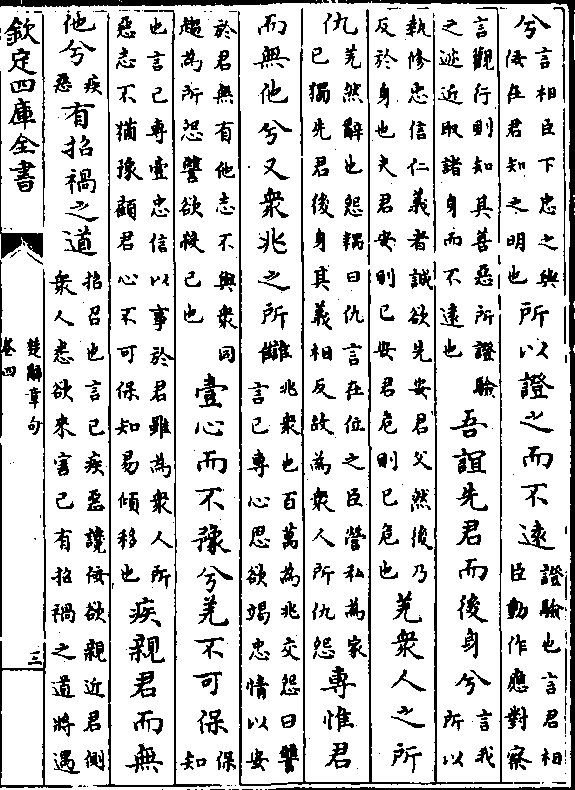 兮言相臣下忠之與佞在君知之明也所以證之而不遠證驗也言君相臣動作應對察
言觀行則知其善惡所證驗之迹近取諸身而不遠也吾誼先君而後身兮言我所以
執修忠信仁義者誠欲先安君父然後乃反於身也夫君安則己安君危則己危也羌衆人之所
仇羌然辭也怨耦曰仇言在位之臣營私為家己獨先君後身其義相反故為衆人所仇怨專惟君
而無他兮又衆兆之所讎兆衆也百萬為兆交怨曰讐言己專心思欲竭忠情以安
於君無有他志不與衆同趨為所怨讐欲殺己也壹心而不豫兮羌不可保保知
也言己專壹忠信以事於君雖為衆人所惡志不猶豫顧君心不可保知易傾移也疾親君而無
他兮疾惡有招禍之道招召也言己疾惡讒佞欲親近君側衆人悉欲來害己有招禍之道將遇
欽定四庫全書
楚辭章句
卷四
三